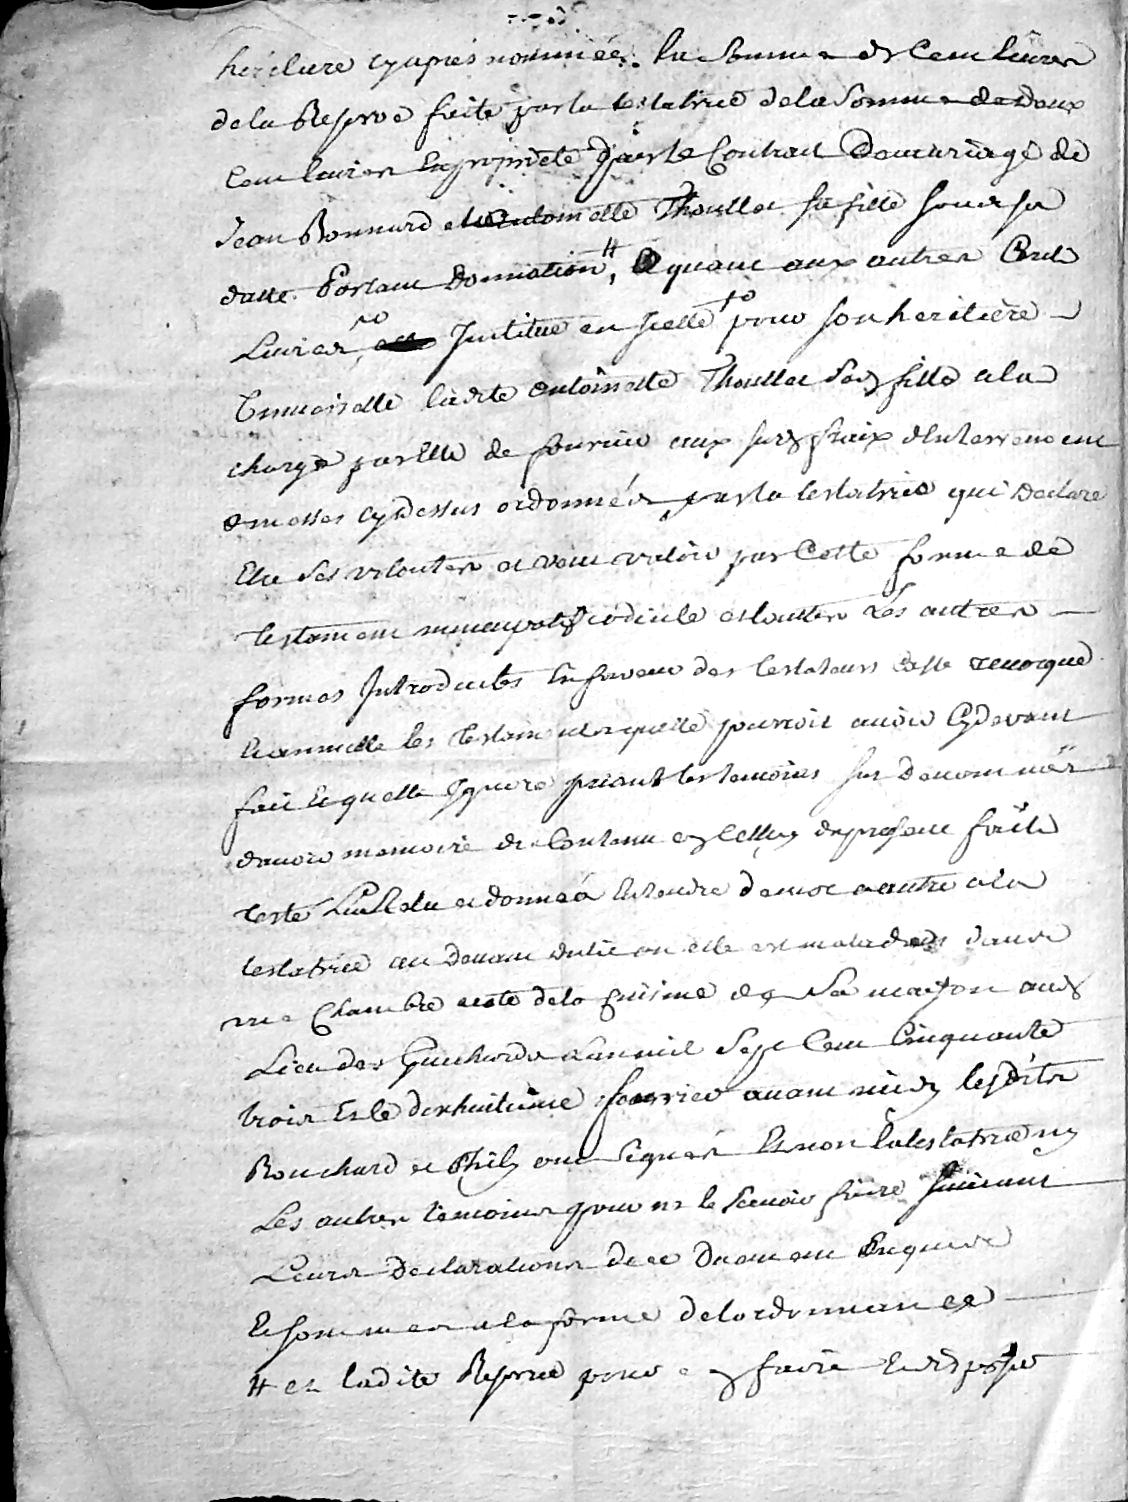 heritiere cyaprés nommée. la Somme de Cent livres
dela Reserve faite par la testatrice dela Somme de deux
Cent livres en proprieté par le Contrat de mariage de
jean Bonnard et antoinette Thoullot sa fille sous sa
datte Portant donnation, # et quant aux autres Cent
Livres, institue en icelle pour son heritière
universelle ladite antoinette Thoullot sa fille ala
charge par Elle de fournir aux susd frais d'Enterrement
et messes cydessus ordonnés par la testatrice qui declare
Etre ses volontés et veut valoir par Cette forme de
testament nuncupatif codicile et toutes Les autres
formes Introduites En faveur des testateurs Casse revoque
Et annulle les testaments quelle pourroit avoir Cydevant
fait Et quelle ignore priant les temoins sus denommés
davoir memoire du Contenu en Celluy depresent fait
resté Lu Relu et donné a Entendre de mot a autre ala
testatrice au devant du lit ou elle est malade dans
une Chambre acoté dela cuisine de Sa maison aud
Lieu des Guichards Lan mil Sept Cent Cinquante
trois Et le dixhuitieme fevrier avant midy lesdits
Bouchard et Phily ont Signés Et non la testatrice ny
Les autres temoins pour ne le Scavoir faire suivant
Leurs declarations de ce duement Enquis
Et sommés ala forme delordonnance
# et ladite Reserve pour en faire